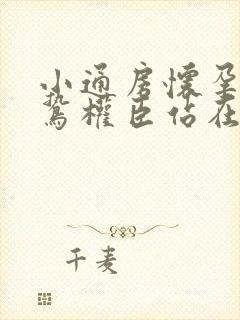 小通房懷孕
鷙權臣佔在
千麦